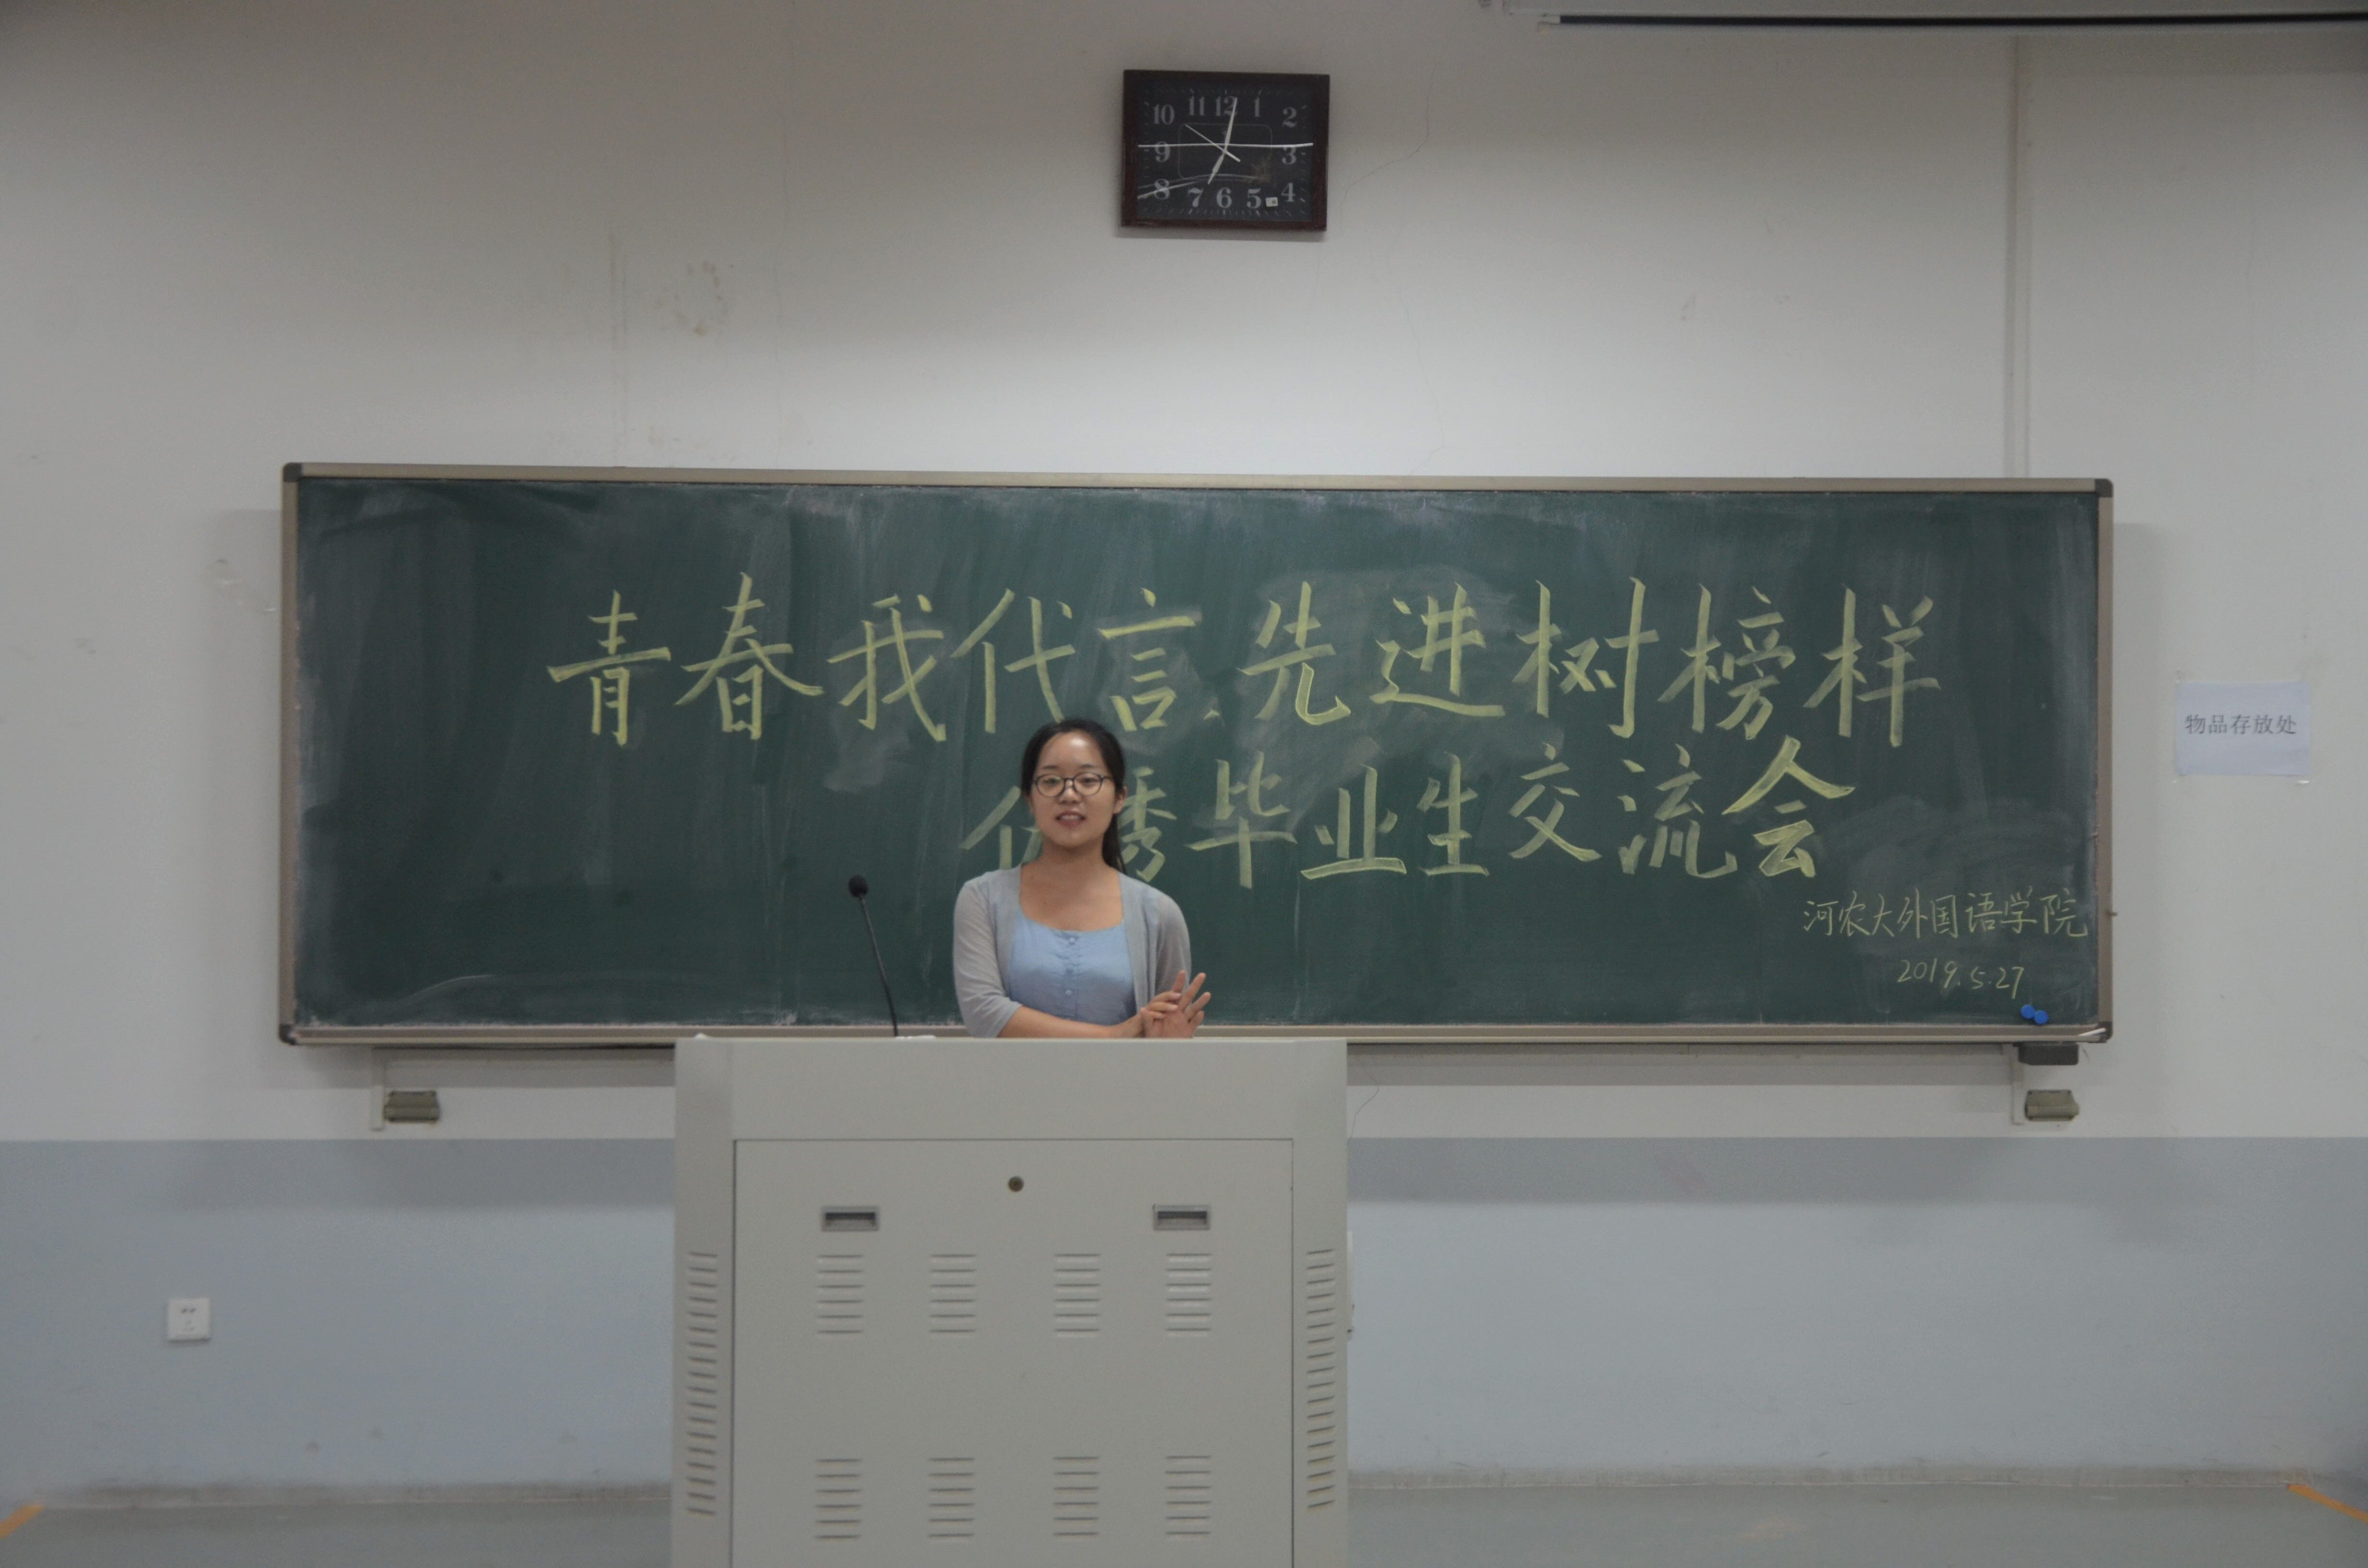 10 11 12 1 2
9 3
8 7 6 5 4
青春我代言 先进树榜样
优秀毕业生交流会
物品存放处
河农大外国语学院
2019.5.27